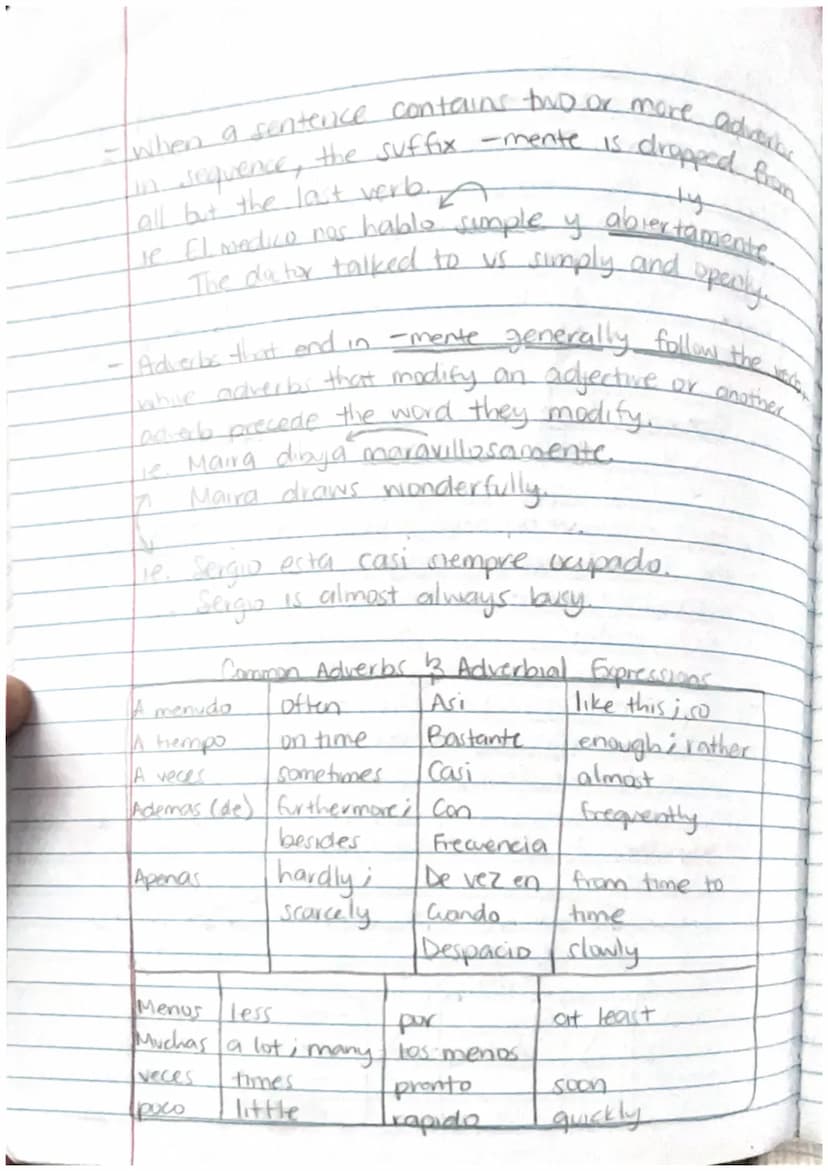 - When a sentence contains two or more adverbs
in sequence, the suffix -mente is dropped from
all but the last verb.
ly
ie El medico nos hablo simple y abiertamente.
The dator talked to us simply and openly.
- Adverbs that end in -mente generally follow the verb,
while adverbs that modify an adjective or another
adverb precede the word they modify.
ie. Maira dibuja maravillosamente.
Maira draws wonderfully.
ie. Sergio esta casi siempre ocupado.
Sergio is almost always busy.
Common Adverbs & Adverbial Expressions
A menudo often Asi like this; so
A tiempo on time Bastante enough; rather
A veces sometimes Casi almost
Ademas (de) furthermore; Con frequently
besides Frecuencia
Apenas hardly; De vez en from time to
scarcely Cuando time
Despacio slowly
Menos less por at least
Muchas a lot; many los menos
veces times pronto soon
poco little rapido quickly